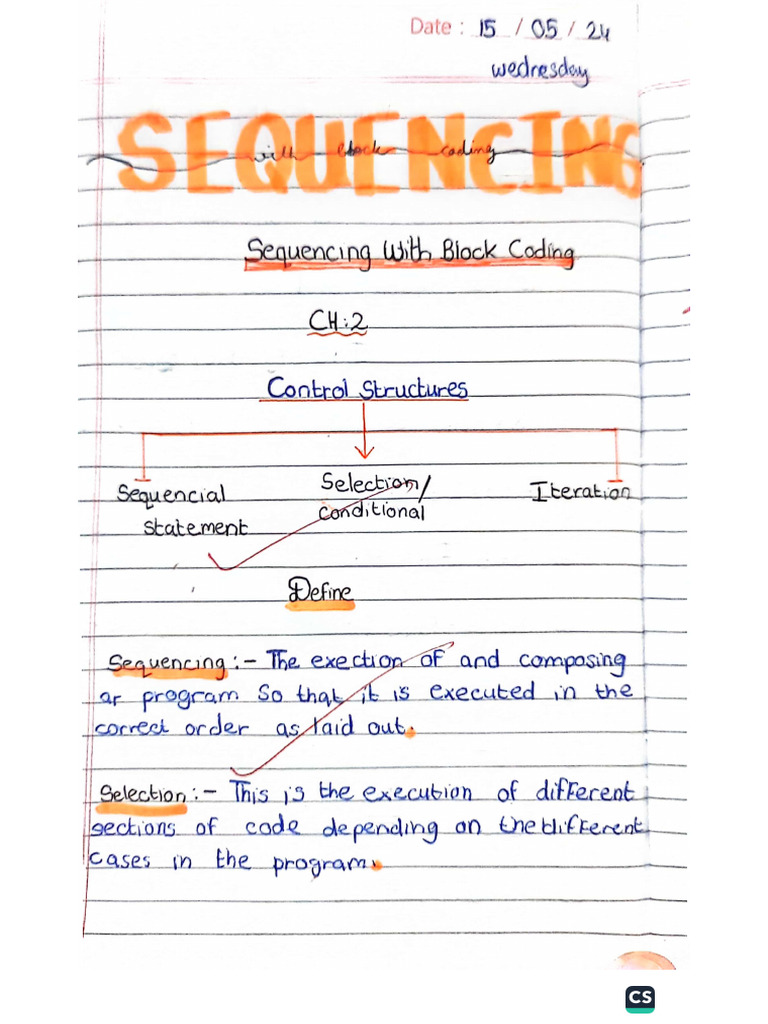 Date : 15 / 05 / 24
wednesday
SEQUENCING
with block coding
Sequencing With Block Coding
CH:2
Control Structures
Sequencial Selection/ Iteration
statement conditional
Define
Sequencing :- The exection of and composing
ar program so that it is executed in the
correct order as laid out.
Selection :- This is the execution of different
sections of code depending on the different
cases in the program.
CS